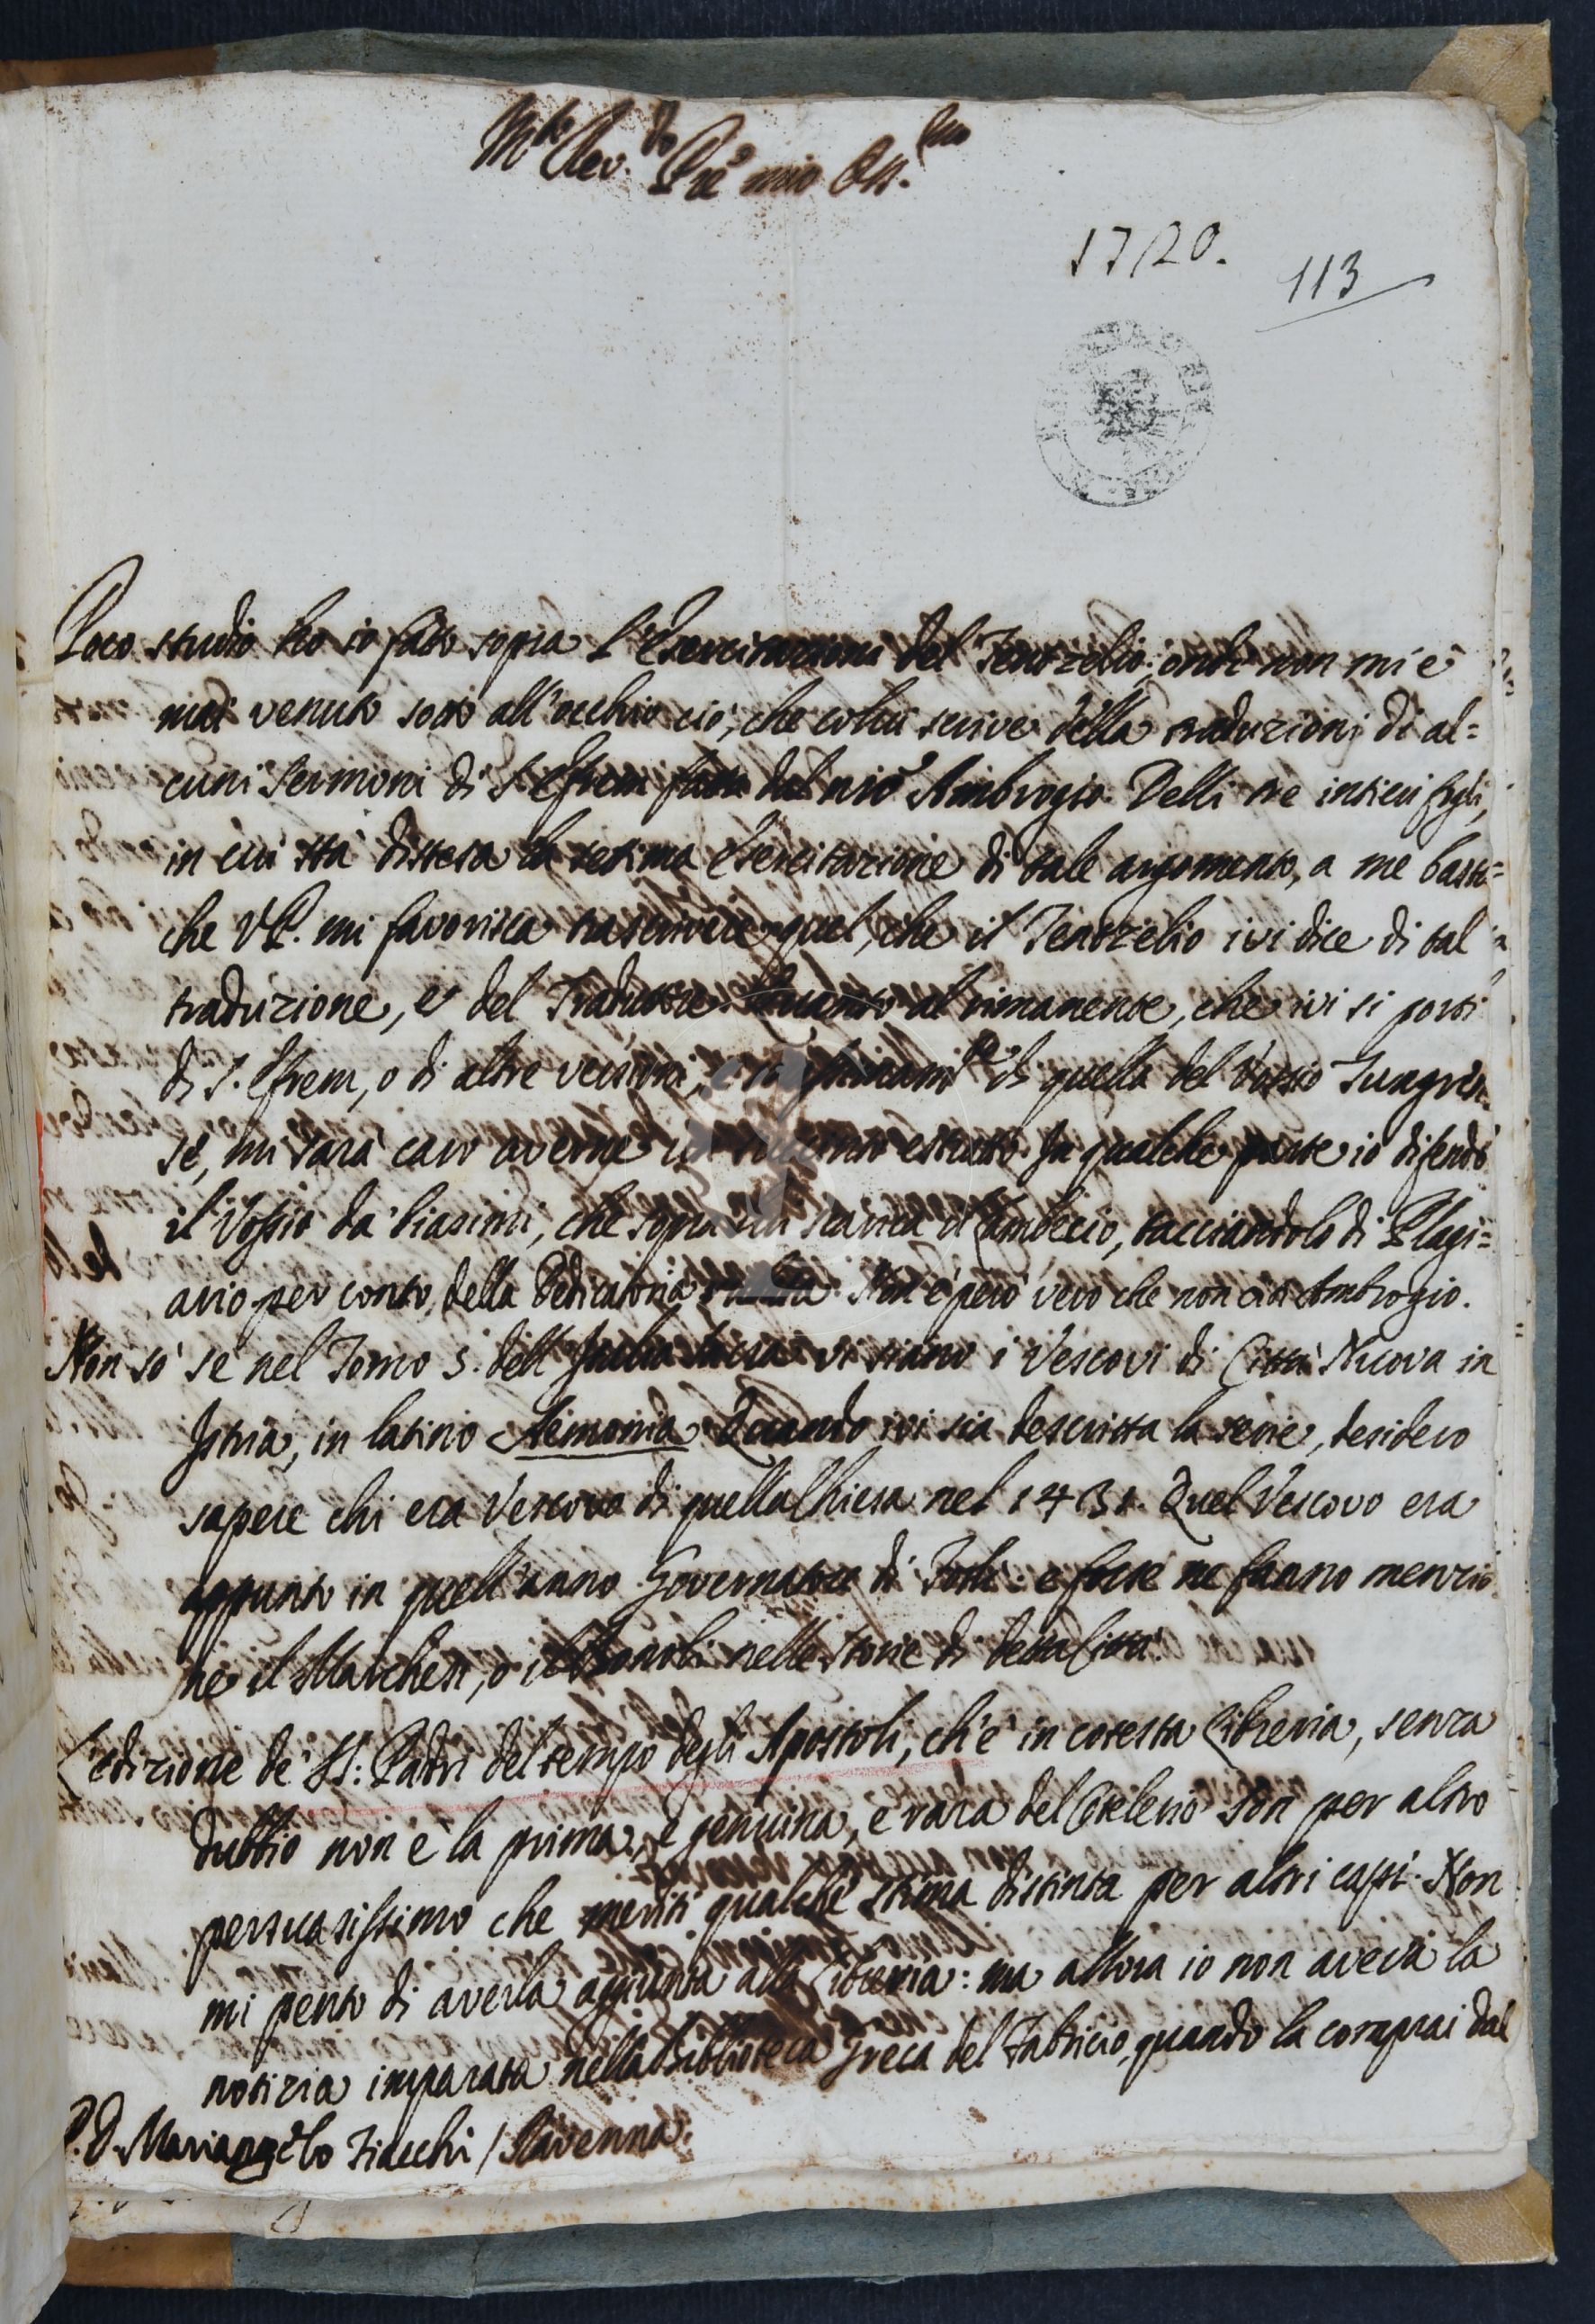 M.to Rev.do P.re mio Oss.mo
1720.
113
Poco studio ho io fatto sopra l'Esercitazioni del Tentzelio; onde non mi è
mai venuto sotto all'occhio ciò, che colui scrive della traduzioni di al=
cuni Sermoni di S. Efrem fatta dal nr̃o Ambrogio. Delli tre intieri fogli,
in cui sta distesa la settima Esercitazione di tale argomento, a me basta=
che V.P. mi favorisca trascrivere quel, che il Tentzelio ivi dice di tal
traduzione, e del Traduttore. Quanto al rimanente, che ivi si porti
di S. Efrem, o di altre versioni, e di quella del Vossio Tungren
se, mi sarà caro averne un succinto estratto. In qualche parte io difendo
il Vossio da' biasimi, che sopra lui scarica il Lambecio, tacciandolo di Plagi=
ario per conto della Dedicatoria. Non è però vero che non citi Ambrogio.
Non so se nel Tomo 5. dell'Italia Sacra vi siano i Vescovi di Città Nuova in
Istria, in latino Aemonia. Quando ivi sia descritta la serie, desidero
sapere chi era Vescovo di quella Chiesa nel 1431. Quel Vescovo era
appunto in quell'anno Governatore di Forlì: e forse ne fanno menzio
ne il Marchesi, o il Bonoli nelle Storie di detta Città.
L'edizione de' SS: Padri del tempo degli Apostoli, ch'è in cotesta Libreria, senza
dubbio non è la prima, e genuina, e rara del Cotelerio. Son per altro
persuasissimo che meriti qualche stima distinta per altri capi. Non
mi pento di averla aggiunta alla Libreria: ma allora io non aveva la
notizia imparata nella Biblioteca Greca del Fabricio, quando la comprai dal
P. D. Mariangelo Fiacchi / Ravenna.